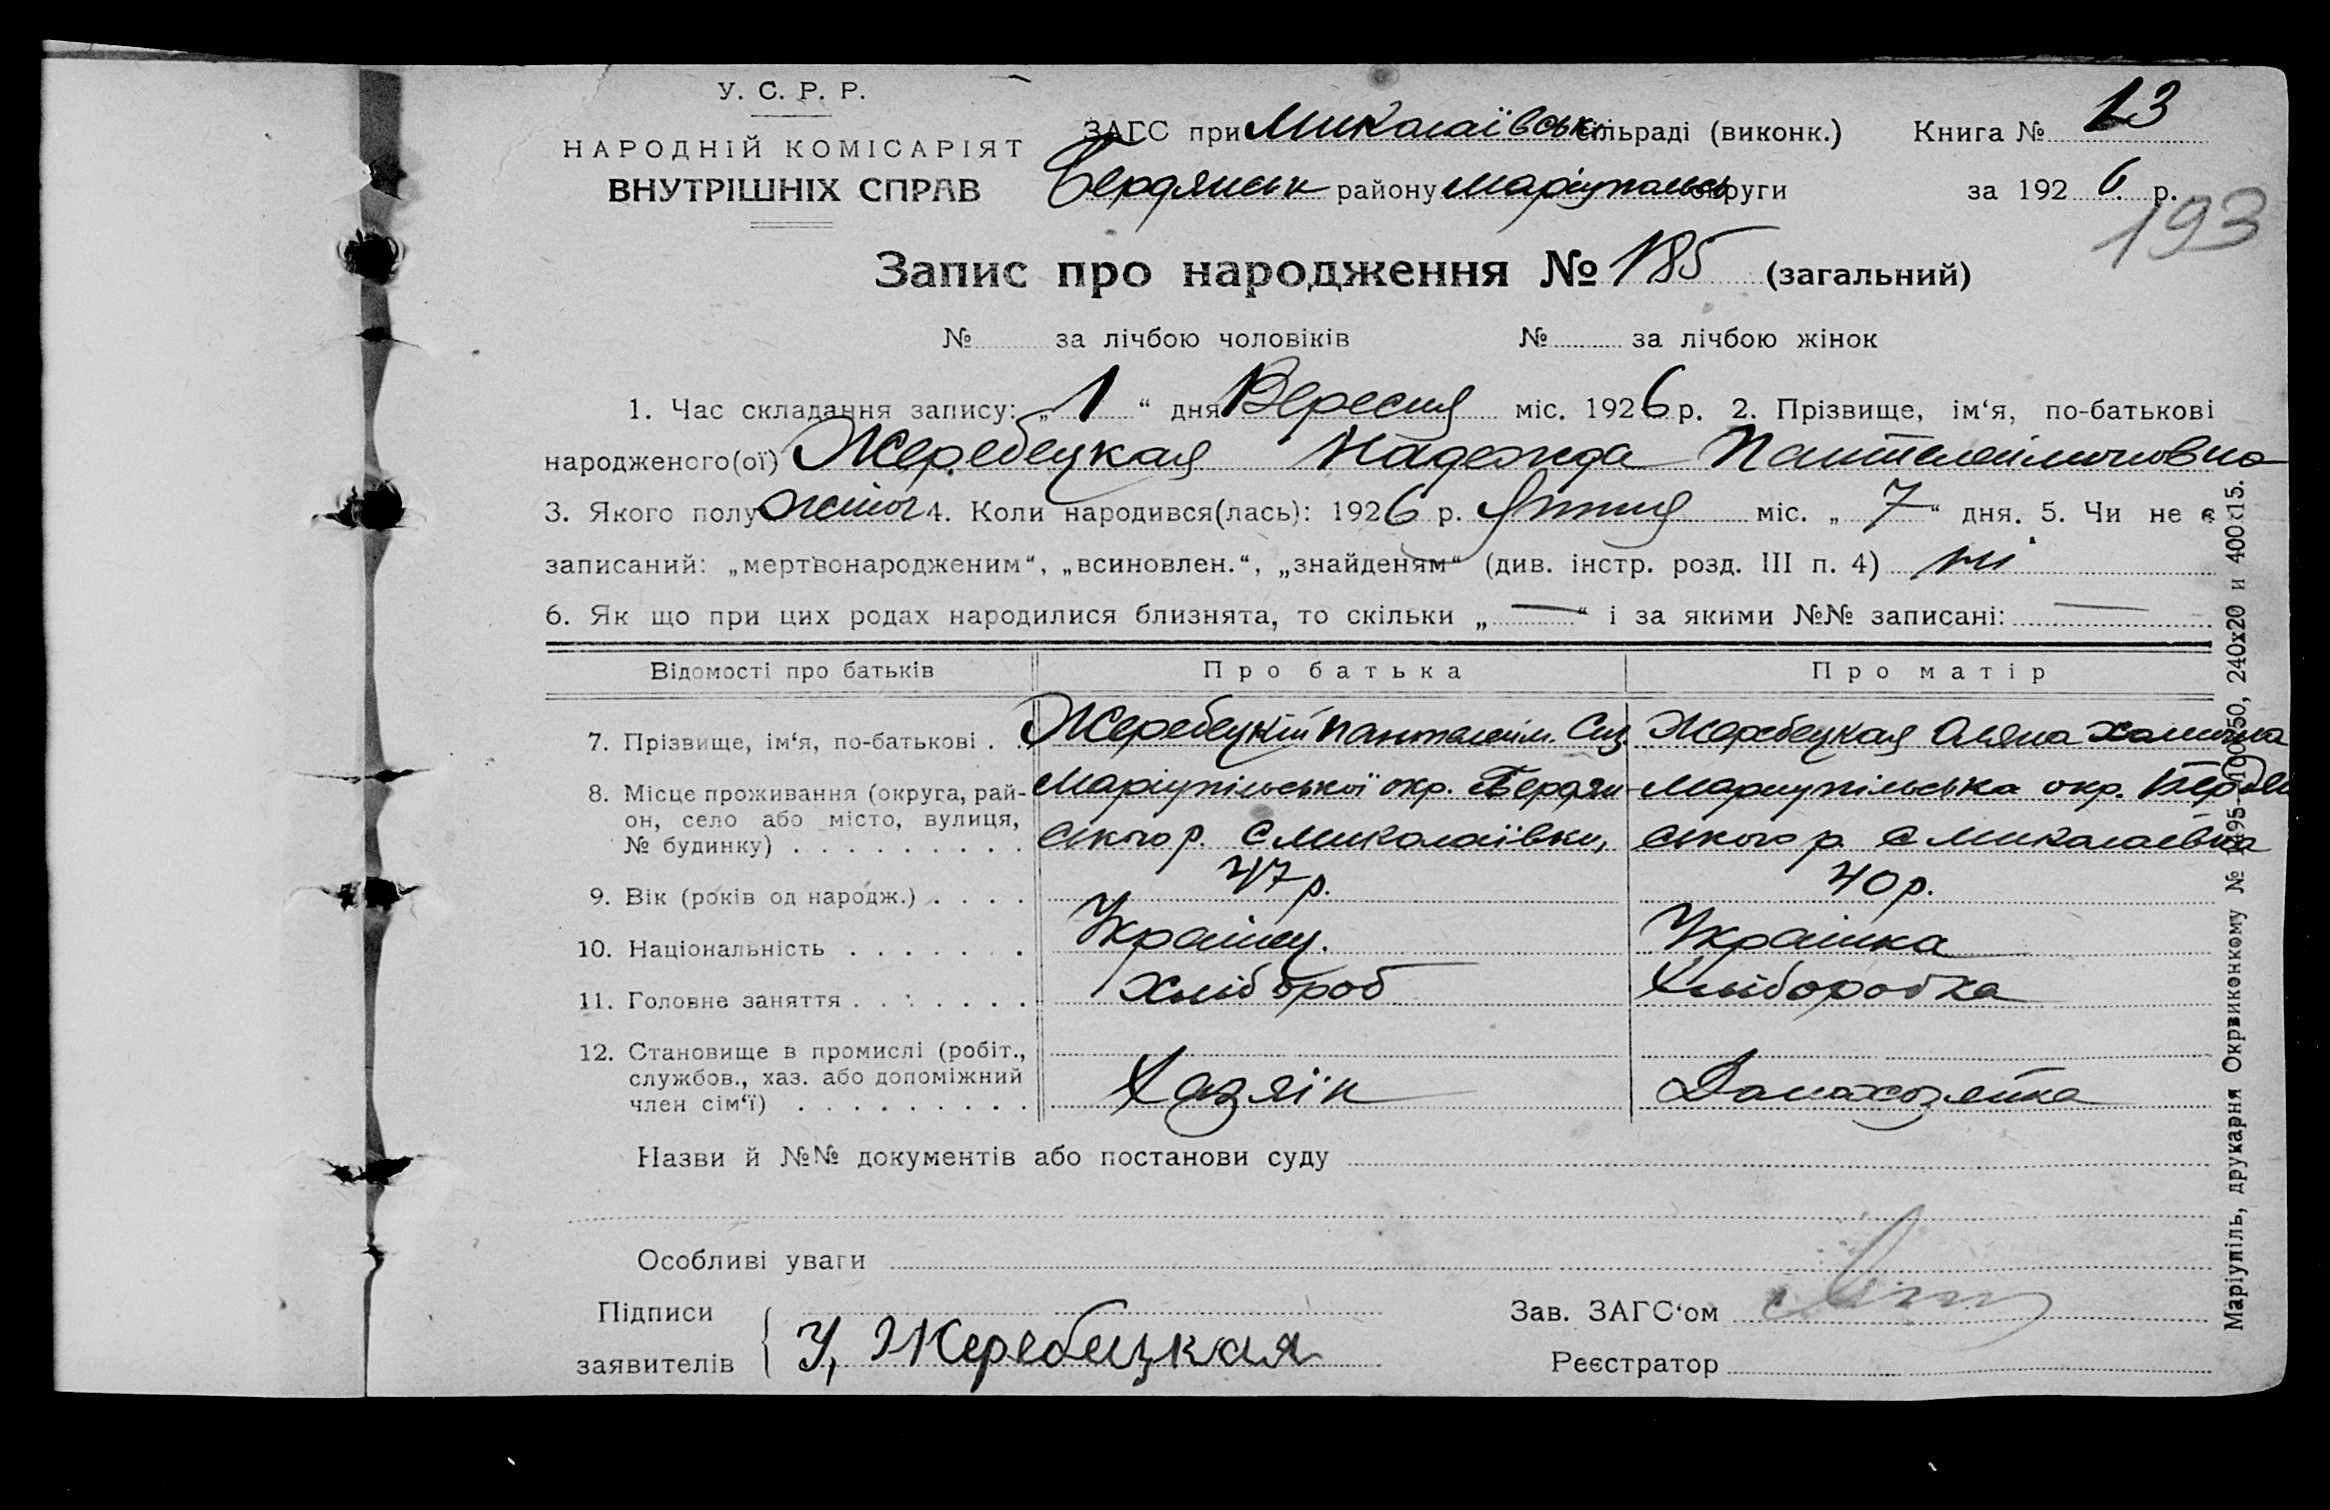 У. С. Р. Р.
НАРОДНІЙ КОМІСАРІЯТ
ВНУТРІШНІХ СПРАВ
ЗАГС при Миколаївськ сільраді (виконк.) Книга № 13
Бердянськ району Маріупольсь округи за 1926 р.
193
Запис про народження № 185 (загальний)
№ за лічбою чоловіків № за лічбою жінок
1. Час складання запису: „1“ дня Вересня міс. 1926 р. 2. Прізвище, ім‘я, по-батькові
народженого(ої) Жеребецкая Надежда Пантелеймоновна
3. Якого полу жіноч 4. Коли народився(лась): 1926 р. міс. „7“ дня. 5. Чи не є
записаний: „мертвонародженим“, „всиновлен.“, „знайденям“ (див. інстр. розд. III п. 4) ні
6. Як що при цих родах народилися близнята, то скільки „—“ і за якими №№ записані: —
Відомості про батьків Про батька Про матір
7. Прізвище, ім‘я, по-батькові . . Жеребецкій Пантелейм. Жеребецкая
8. Місце проживання (округа, рай- Маріупільської окр. Бердян- Мариупільська окр. Бердян
он, село або місто, вулиця, ського р. с Миколаївки, ського р. с Миколаевка
№ будинку) . . . . . . . . .
9. Вік (років од народж.) . . . . 47 р. 40 р.
10. Національність . . . . . . . Українц. Українка
11. Головне заняття . . . . . . . Хлібороб Хлібороб­ка
12. Становище в промислі (робіт.,
службов., хаз. або допоміжний Хазяїн Домахозяйка
член сім‘ї) . . . . . . . . .
Назви й №№ документів або постанови суду
Особливі уваги
Підписи Зав. ЗАГС‘ом
заявителів У, Жеребецкая Реєстратор
Маріупіль, друкарня Окрвиконкому № 240х20 и 400х15.